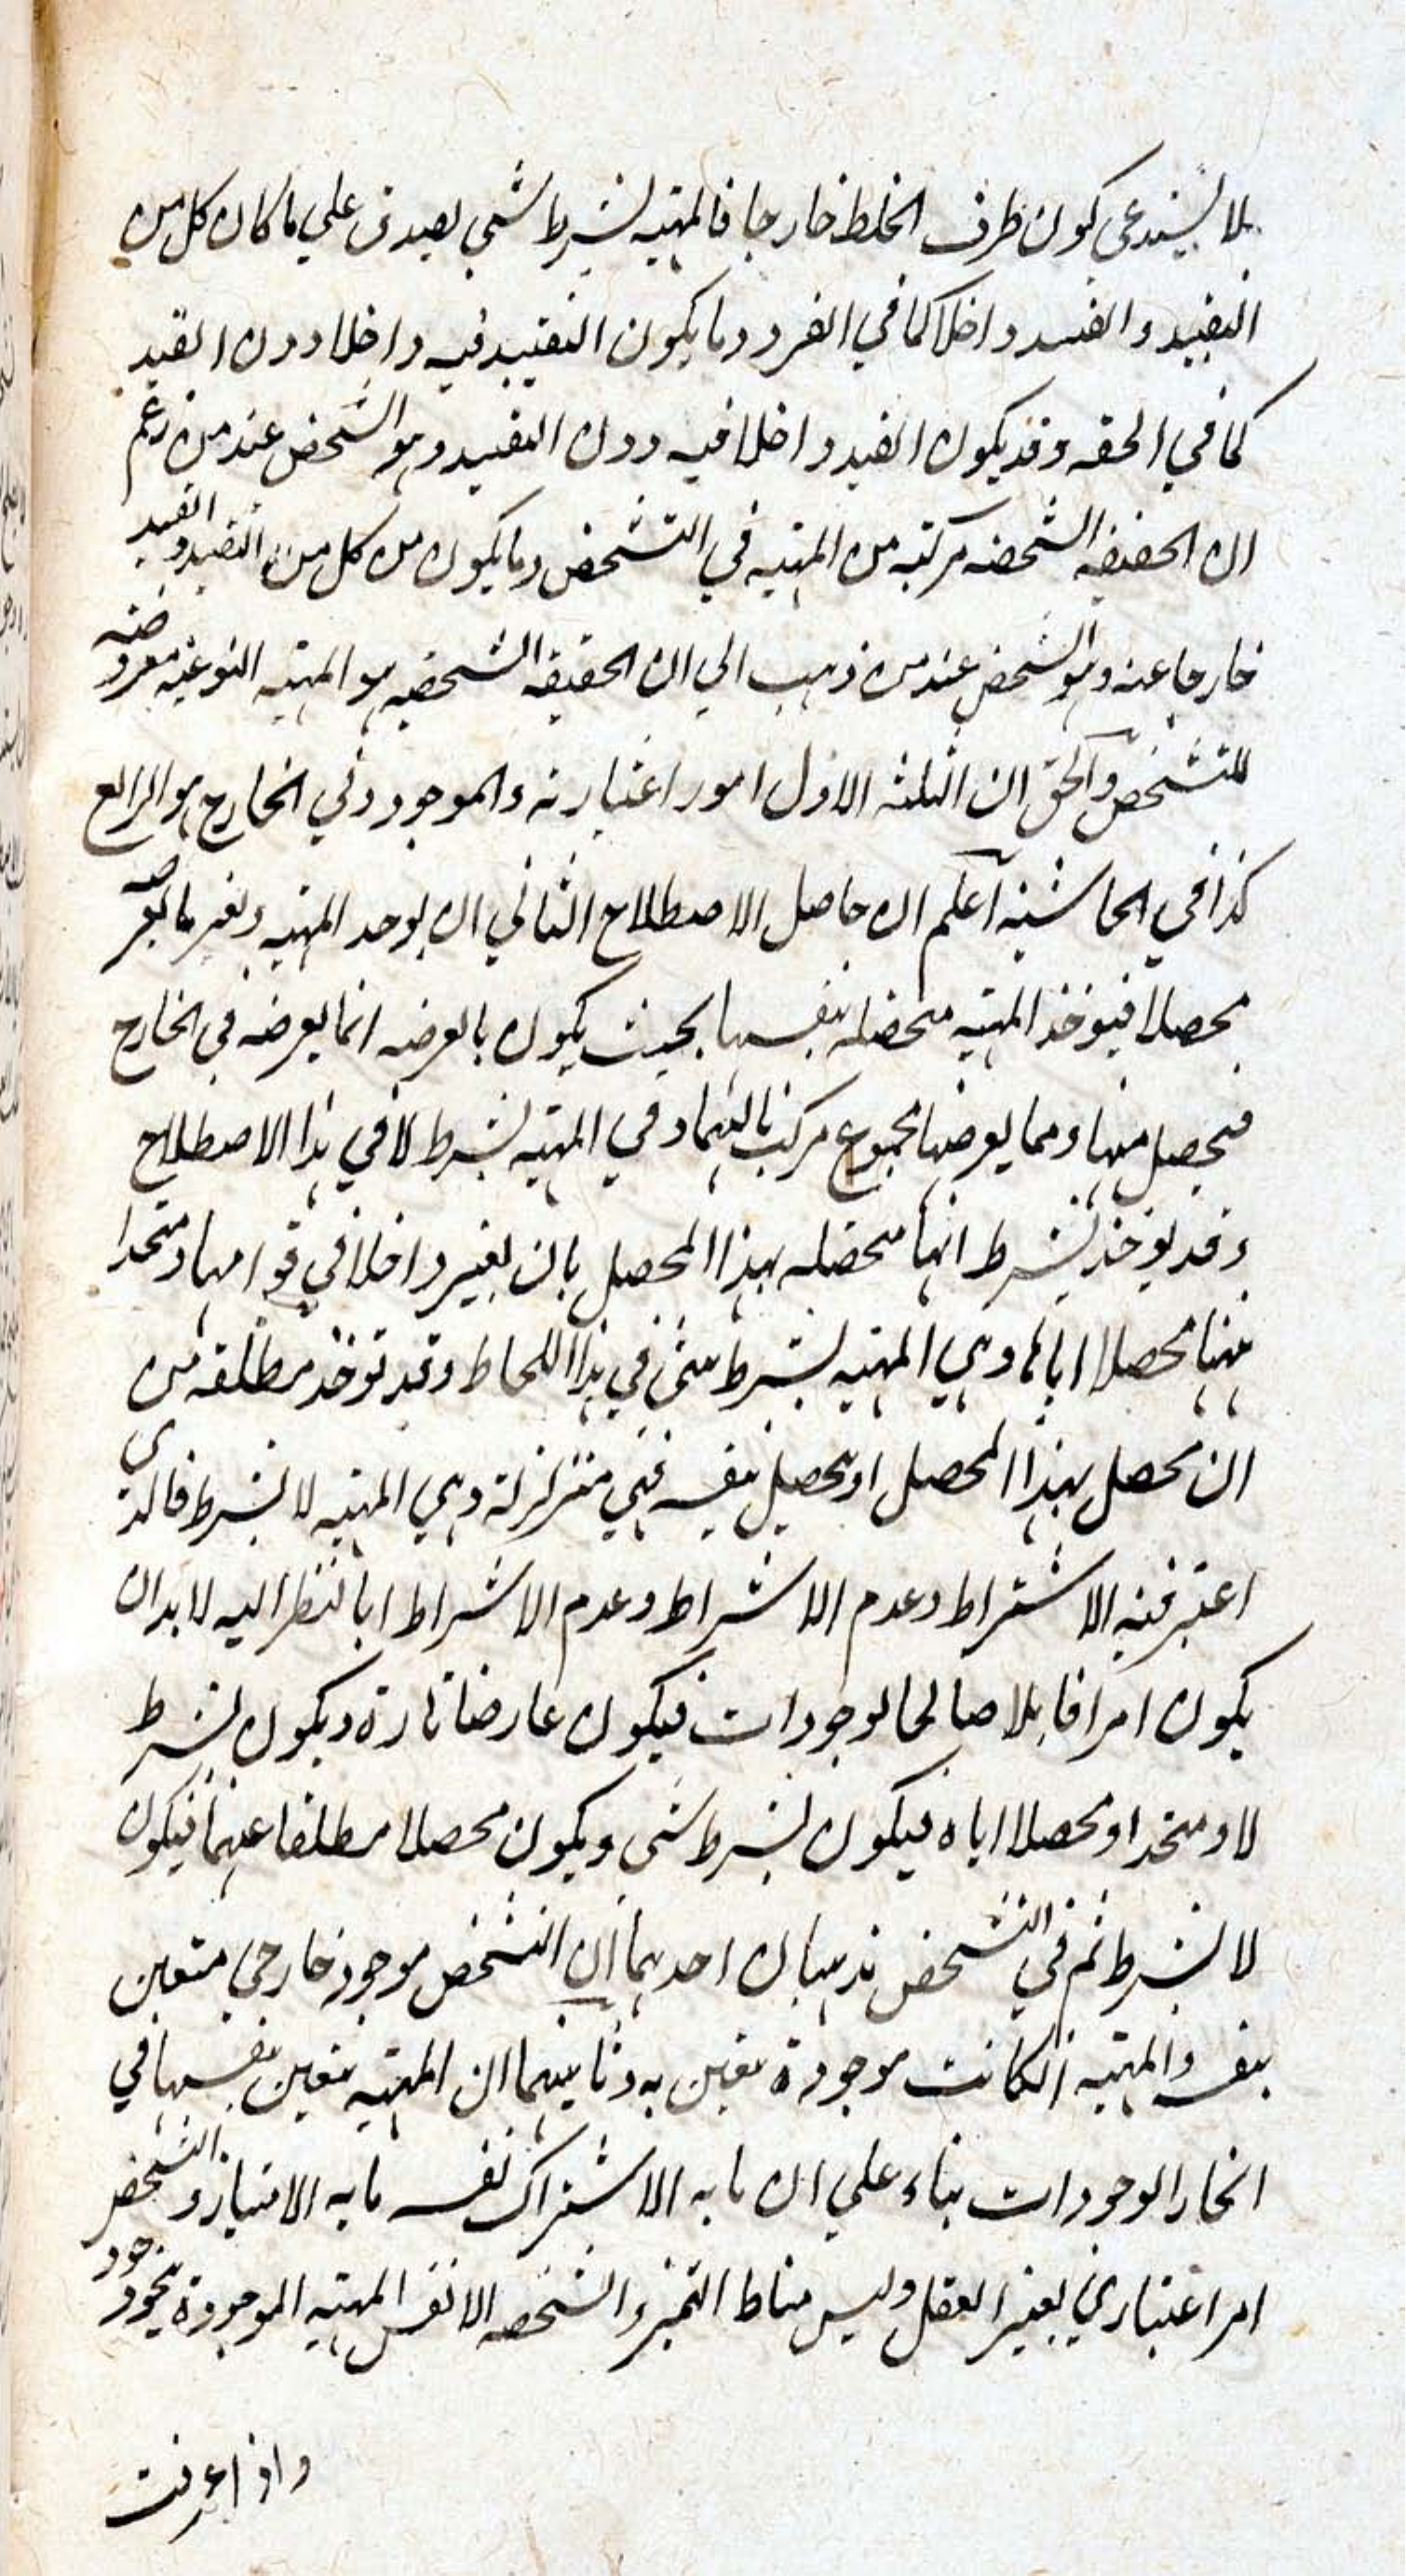 بلا يستدعي كون ظرف الخلط خارجا فالمهية بشرط شي يصدق علي ما كان كل من
التقييد والقيد داخلا كما في الفرد وما يكون التقييد فيه داخلا دون القيد
كما في الحصة وقد يكون القيد داخلا فيه دون التقييد وهو الشخص عند من زعم
ان الحقيقة الشخصية مركبة من المهية في التشخص وما يكون من كل من التقييد والقيد
خارجا عنه وهو الشخص عند من ذهب الي ان الحقيقة الشخصية هو المهية النوعية معروضة
للتشخص والحق ان الثلثة الاول امور اعتبارية والموجود في الخارج هو الرابع
كذا في الحاشية اعلم ان حاصل الاصطلاح الثاني ان يوجد المهية
محصلا فيوخذ المهية محصلة بنفسها بحيث يكون بالعرضه انما يعرضه في الخارج
فيحصل منها ومما يعرضها مجموع مركب بالتيماد في المهية بشرط لا في هذا الاصطلاح
وقد يوخذ بشرط انها محصلة بهذا المحصل بان يعتبر داخلا في قوامها ومتحدا
منها محصلا اياها وهي المهية بشرط شئ في هذا اللحاظ وقد توخذ مطلقة من
ان محصل بهذا المحصل او يحصل بنفسه فهي متزلزلة وهي المهية لا بشرط فالذي
اعتبر فيه الاشتراط وعدم الاشراط وعدم الاشراط ابا لنظر اليه لا بد ان
يكون امرا قابلا صالحا لوجودات فيكون عارضا تارة ويكون بشرط
لا ومتحدا ومحصلا اياه فيكون بشرط شئ ويكون محصلا مطلقا عنهما فيكون
لا بشرط ثم في التشخص مذهبان احدهما ان التشخص موجود خارجي متعين
بنفسه والمهية ان كانت موجودة تعين به وثانيهما ان المهية متعين بنفسها في
انحاء الوجودات بناء علي ان ما به الاشتراك نفسه ما به الامتياز والتشخص
امر اعتباري يعتبر العقل وليس مناط التميز والتشخصه الا نفس المهية الموجودة بنحو وجود
واذا عرفت